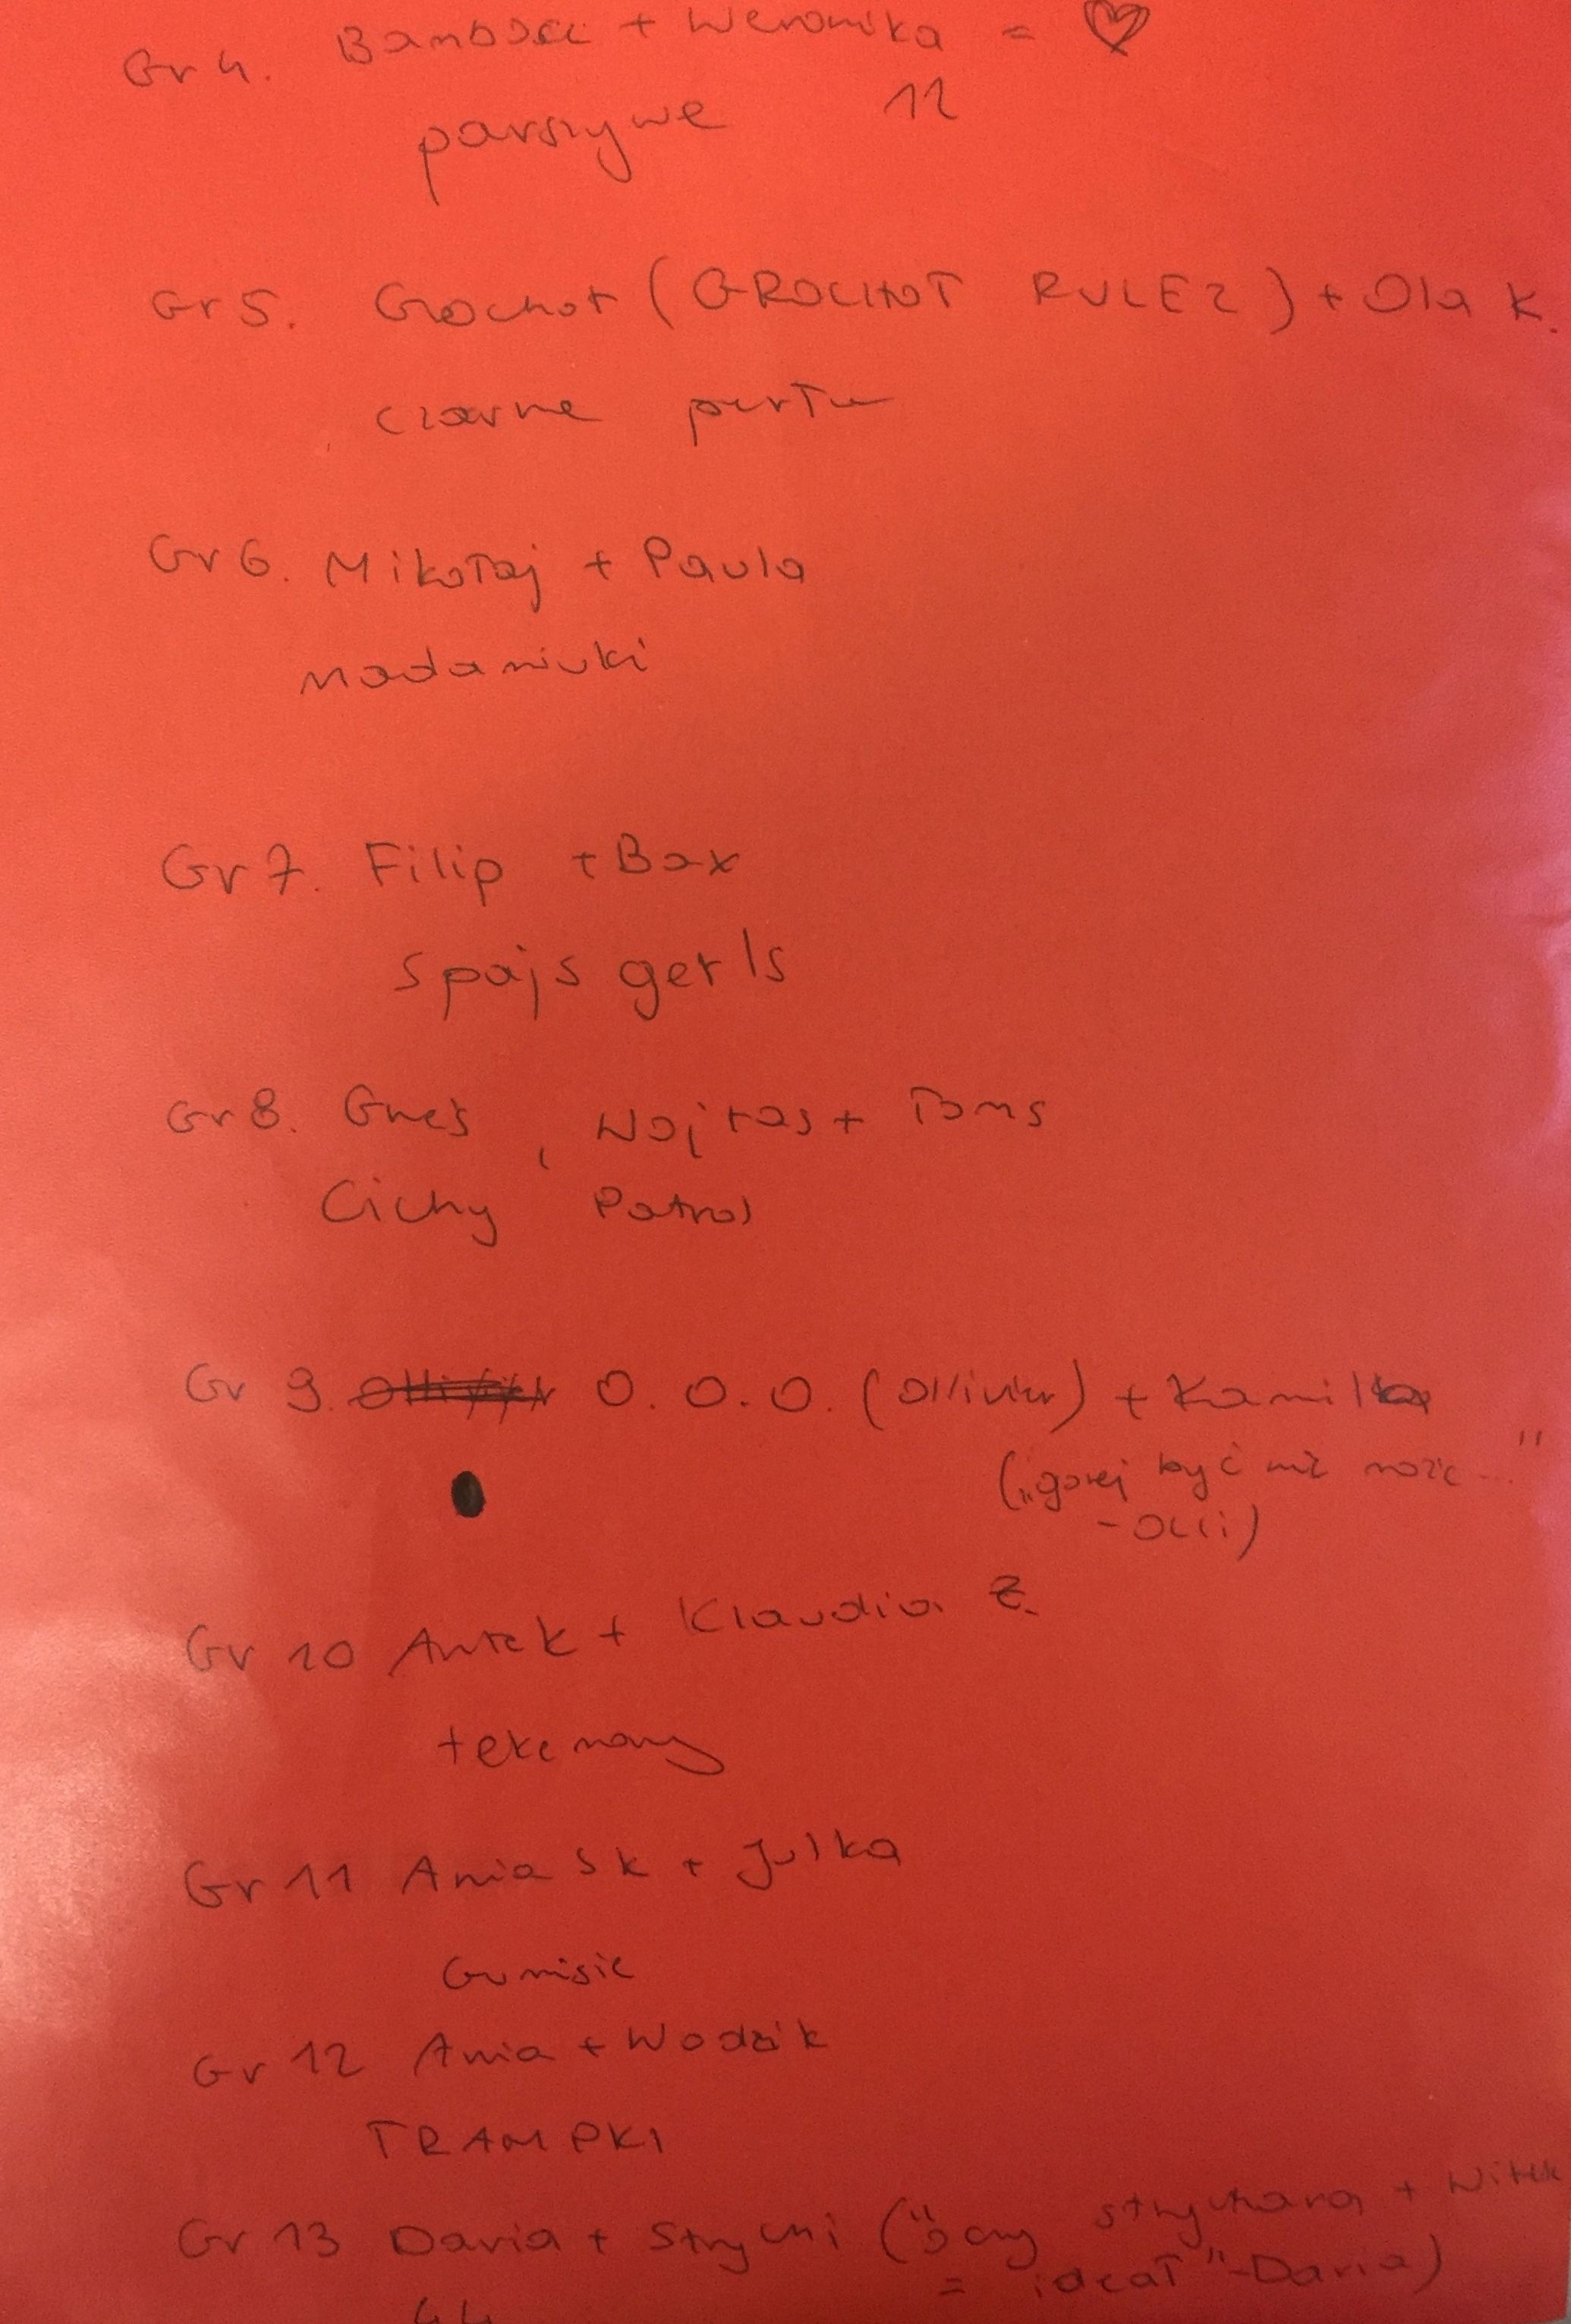 Gr 4. Bambosz + Weronika = ♡
parszywe 12
Gr 5. Grochot (GROCHOT RULEZ) + Ola K.
czarne
Gr 6. Mikołaj + Paula
Gr 7. Filip + Bax
Spajs gerls
Gr 8. Gneś, Wojtas + Toms
Cichy Patrol
Gr 9. O.O.O. (Ollivier) + Kamilla
("gorzej być nie może..."
- Olli)
Gr 10 Antek + Klaudia Z.
tekemany
Gr 11 Ania Sk + Julka
Gumisie
Gr 12 Ania + Wodzik
TRAMPKI
Gr 13 Daria + Strychi ("oczy strychara + Witek
= ideał" - Daria)
44